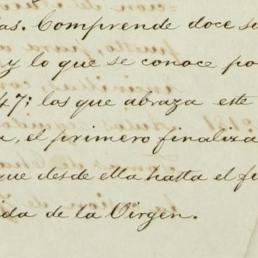 as. Comprende doce s
y lo que se conoce po
47; los que abraza este
a, el primero finaliza
que desde ella hasta el f
ida de la Virgen.